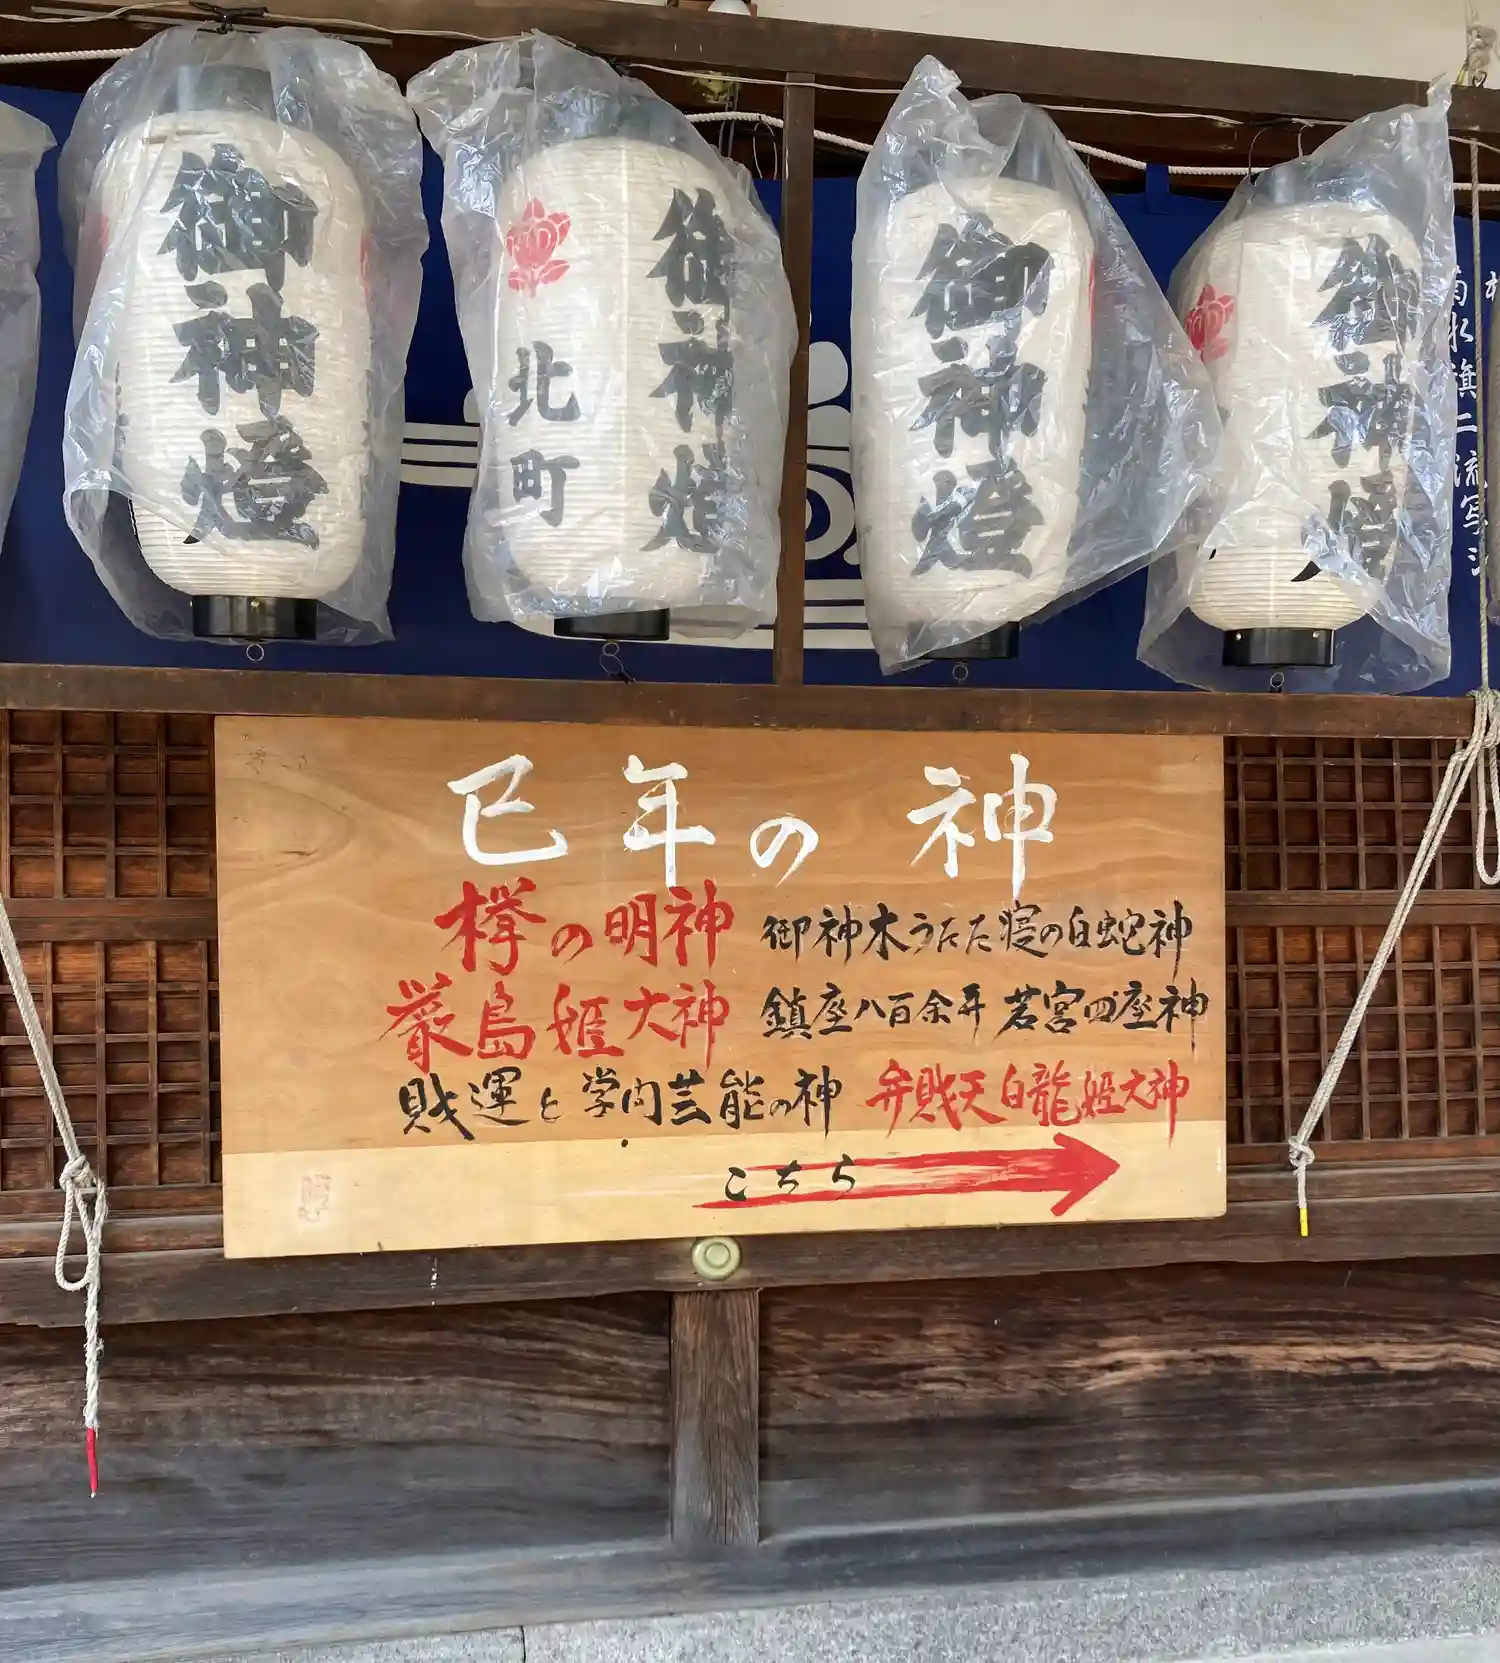 御神燈
北町
御神燈
御神燈
御神燈
菊水旗二流写シ
巳年の神
欅の明神 御神木うたた寝の白蛇神
厳島姫大神 鎮座八百余年 若宮四座神
財運と学問芸能の神 弁財天白龍姫大神
こちら